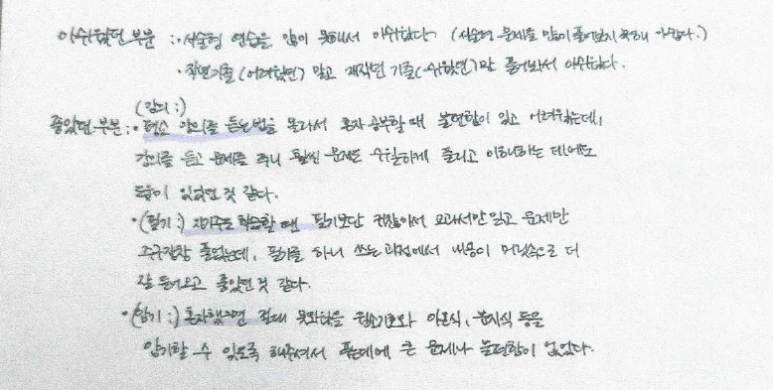 아쉬웠던 부분 : · 서술형 연습을 많이 못해서 아쉬웠다. (서술형 문제를 많이 풀어보지 못해 아쉽다.)
· 작년기출(어려웠던) 말고 재작년 기출(쉬웠던)만 풀어봐서 아쉬웠다.
(강의 :)
좋았던 부분 : · 평소 강의를 듣는법을 몰라서 혼자 공부할 때 불편함이 있고 어려웠는데,
강의를 듣고 문제를 푸니 훨씬 문제도 수월하게 풀리고 이해하는 데에도
도움이 있었던 것 같다.
· (필기 :) 자기주도학습할 땐 필기보단 귀찮아서 교과서만 읽고 문제만
주구장창 풀었는데, 필기를 하니 쓰는 과정에서 내용이 머릿속으로 더
잘 들어오고 좋았던 것 같다.
· (암기 :) 혼자했으면 절대 못외웠을 원소기호와 이온식, 분자식 등을
암기할 수 있도록 해주셔서 푸는데에 큰 문제나 불편함이 없었다.